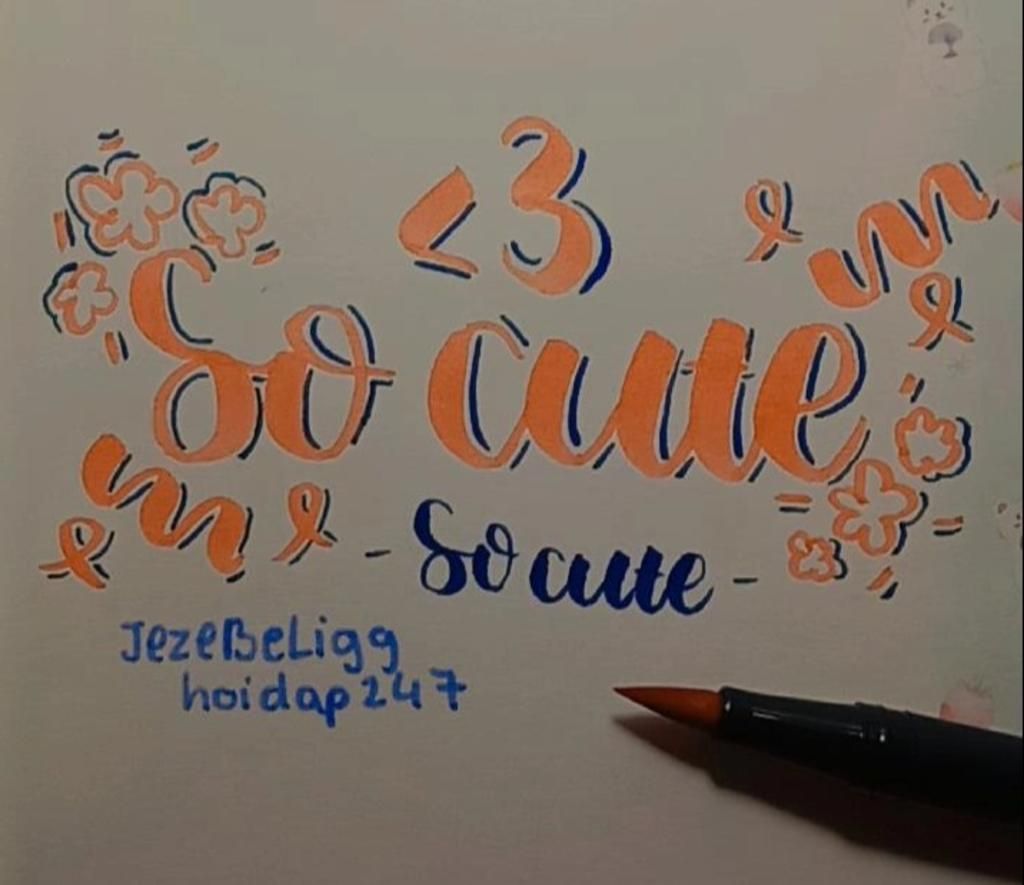 <3
So cute
- So cute -
JezeBeLigg
hoidap247